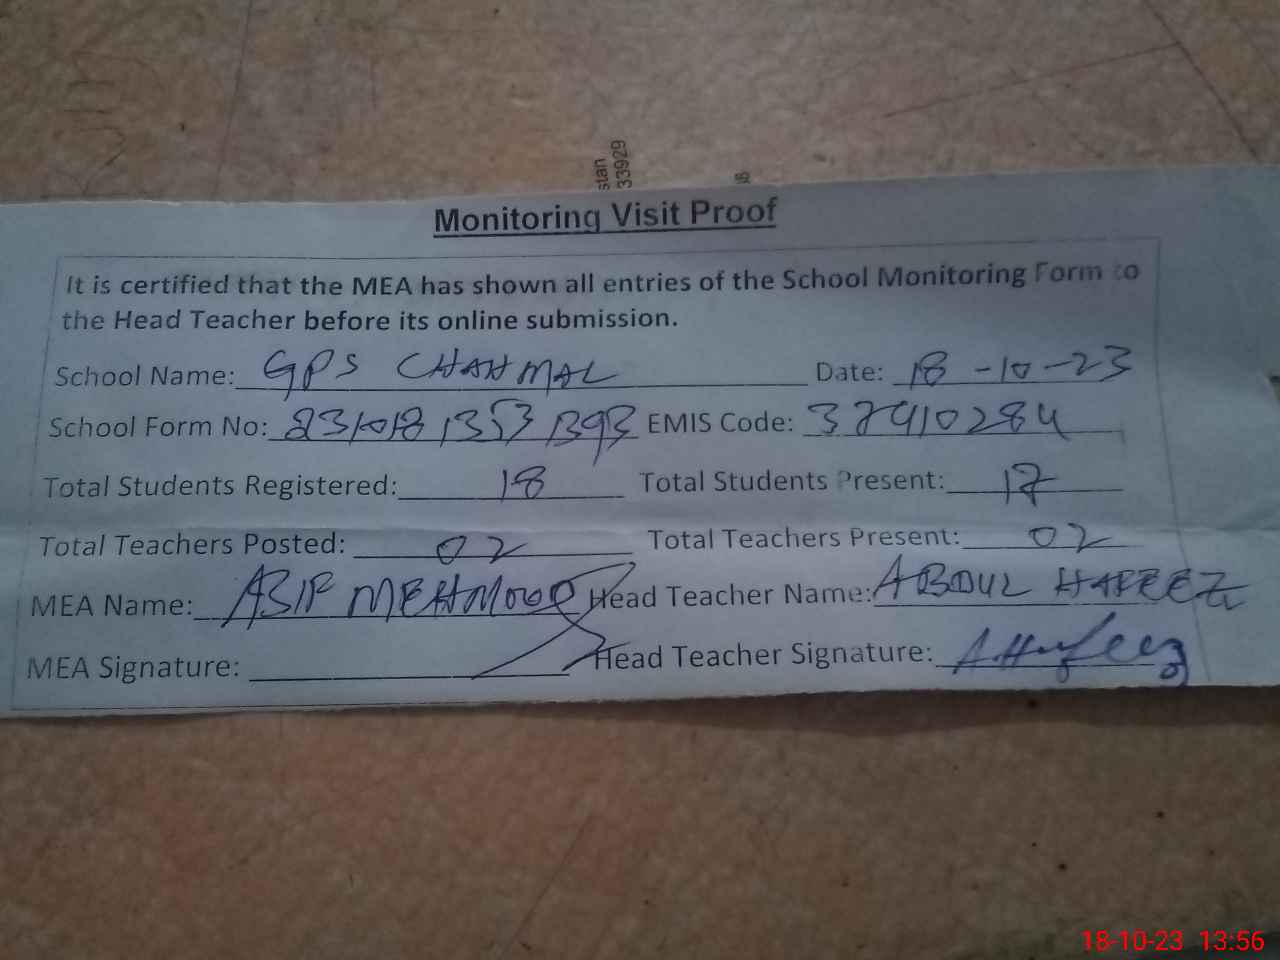 stan
33929
Monitoring Visit Proof
It is certified that the MEA has shown all entries of the School Monitoring Form to
the Head Teacher before its online submission.
School Name: GPS CHAHMAL Date: 18-10-23
School Form No: 231018 1353 1393 EMIS Code: 37410284
Total Students Registered: 18 Total Students Present: 17
Total Teachers Posted: 02 Total Teachers Present: 02
MEA Name: ASIF MEHMOOD Head Teacher Name: ABDUL HAFEEZ
MEA Signature: Head Teacher Signature: A.Hafeez
18-10-23 13:56